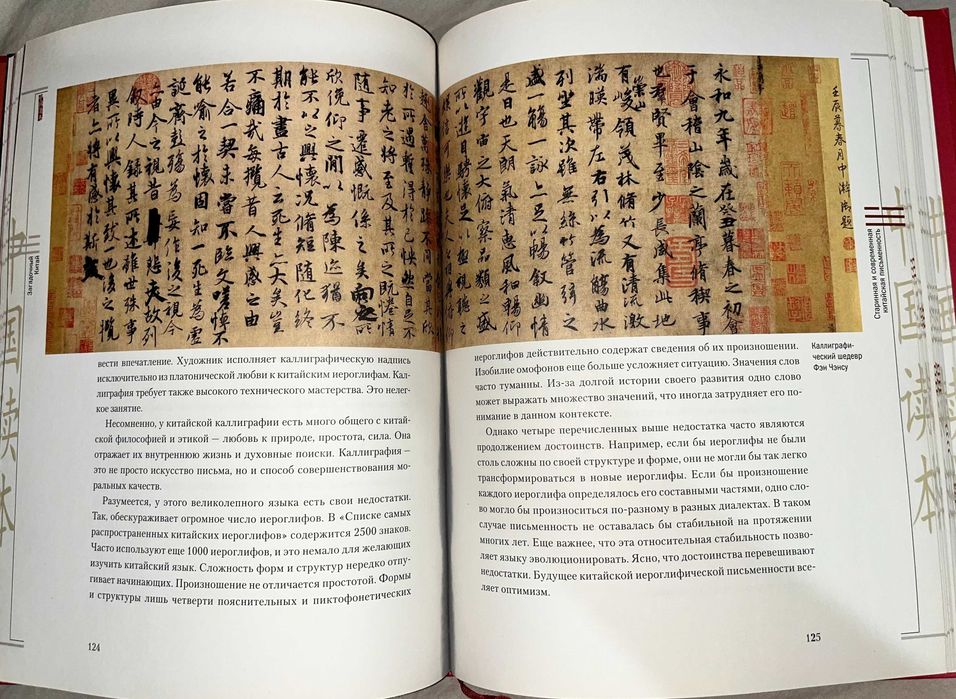 壬辰暮春月中澣御題
永和九年歲在癸丑暮春之初會
于會稽山陰之蘭亭脩稧事
也羣賢畢至少長咸集此地
有崇山峻領茂林脩竹又有清流激
湍暎帶左右引以為流觴曲水
列坐其次雖無絲竹管弦之
盛一觴一詠亦足以暢敘幽情
是日也天朗氣清惠風和暢仰
觀宇宙之大俯察品類之盛
所以遊目騁懷足以極視聽之
舍萬殊靜躁不同當其欣
於所遇蹔得於己怏然自足不
知老之將至及其所之既惓情
隨事遷感慨係之矣向之所
欣俛仰之閒以為陳迹猶不
能不以之興懷況脩短隨化終
期於盡古人云死生亦大矣豈
不痛哉每攬昔人興感之由
若合一契未嘗不臨文嗟悼不
能喻之於懷固知一死生為虛
誕齊彭殤為妄作後之視今
亦由今之視昔悲夫故列
敘時人錄其所述雖世殊事
異所以興懷其致一也後之攬
者亦將有感於斯
Загадочный
Китай
国读本
вести впечатление. Художник исполняет каллиграфическую надпись
исключительно из платонической любви к китайским иероглифам. Кал-
лиграфия требует также высокого технического мастерства. Это нелег-
кое занятие.
Несомненно, у китайской каллиграфии есть много общего с китай-
ской философией и этикой – любовь к природе, простота, сила. Она
отражает их внутреннюю жизнь и духовные поиски. Каллиграфия –
это не просто искусство письма, но и способ совершенствования мо-
ральных качеств.
Разумеется, у этого великолепного языка есть свои недостатки.
Так, обескураживает огромное число иероглифов. В «Списке самых
распространенных китайских иероглифов» содержится 2500 знаков.
Часто используют еще 1000 иероглифов, и это немало для желающих
изучить китайский язык. Сложность форм и структур нередко отпу-
гивает начинающих. Произношение не отличается простотой. Формы
и структуры лишь четверти пояснительных и пиктофонетических
124
иероглифов действительно содержат сведения об их произношении.
Изобилие омофонов еще больше усложняет ситуацию. Значения слов
часто туманны. Из-за долгой истории своего развития одно слово
может выражать множество значений, что иногда затрудняет его по-
нимание в данном контексте.
Однако четыре перечисленных выше недостатка часто являются
продолжением достоинств. Например, если бы иероглифы не были
столь сложны по своей структуре и форме, они не могли бы так легко
трансформироваться в новые иероглифы. Если бы произношение
каждого иероглифа определялось его составными частями, одно сло-
во могло бы произноситься по-разному в разных диалектах. В таком
случае письменность не оставалась бы стабильной на протяжении
многих лет. Еще важнее, что эта относительная стабильность позво-
ляет языку эволюционировать. Ясно, что достоинства перевешивают
недостатки. Будущее китайской иероглифической письменности все-
ляет оптимизм.
125
Каллиграфи-
ческий шедевр
Фэн Чэнсу
Старинная и современная
китайская письменность
国读本